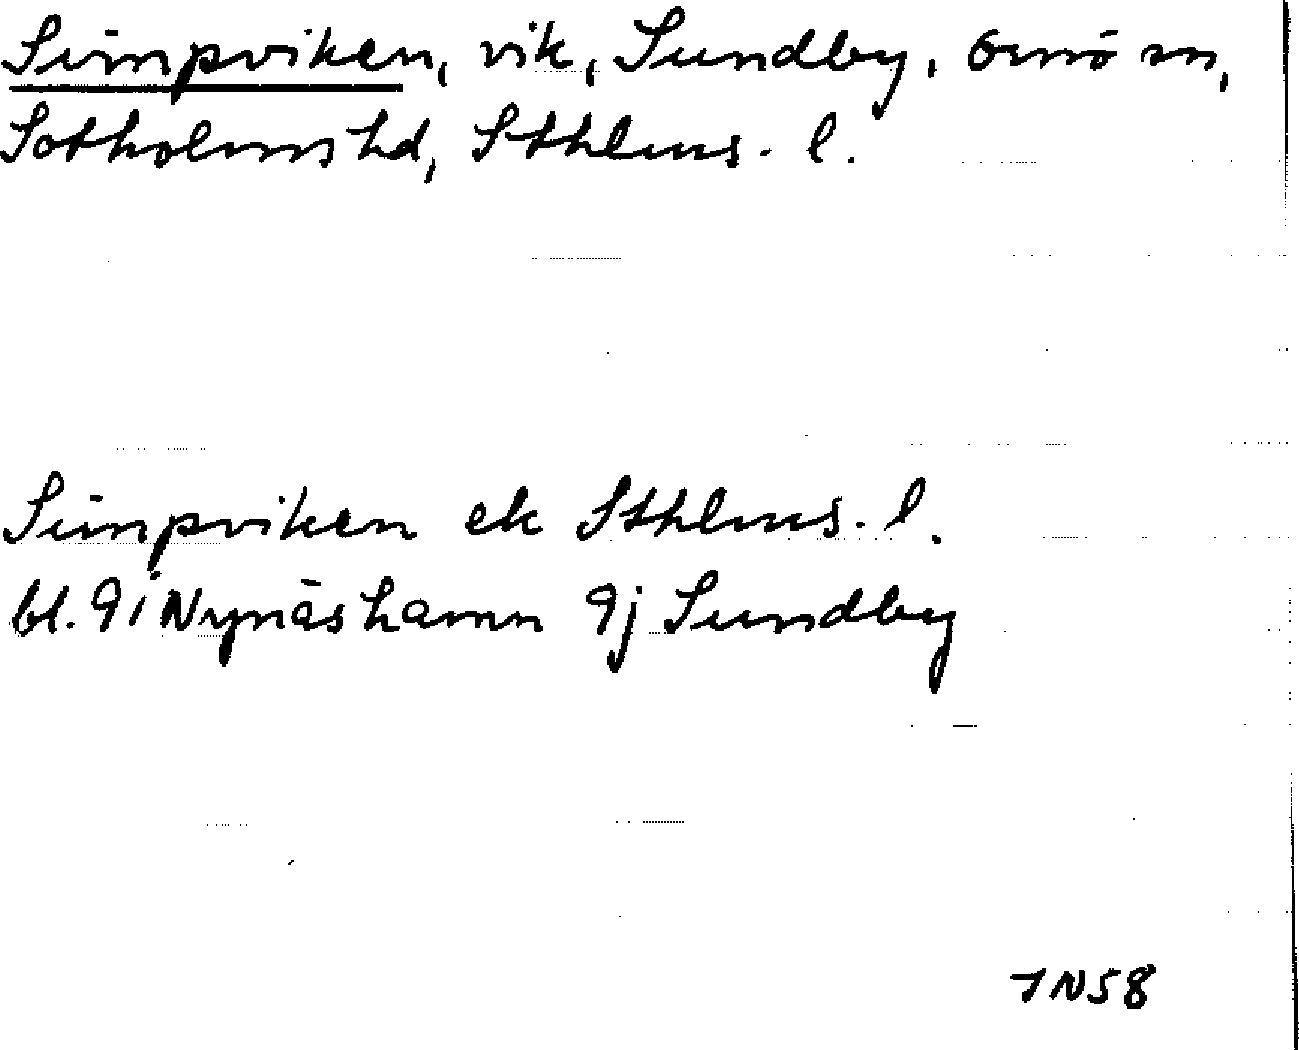 Simpviken, vik, Sundby, Ornö sn,
Sotholms hd, Sthlms. l.
Simpviken ek Sthlms. l.
bl. 9i Nynäshamn 9j Sundby
JN58